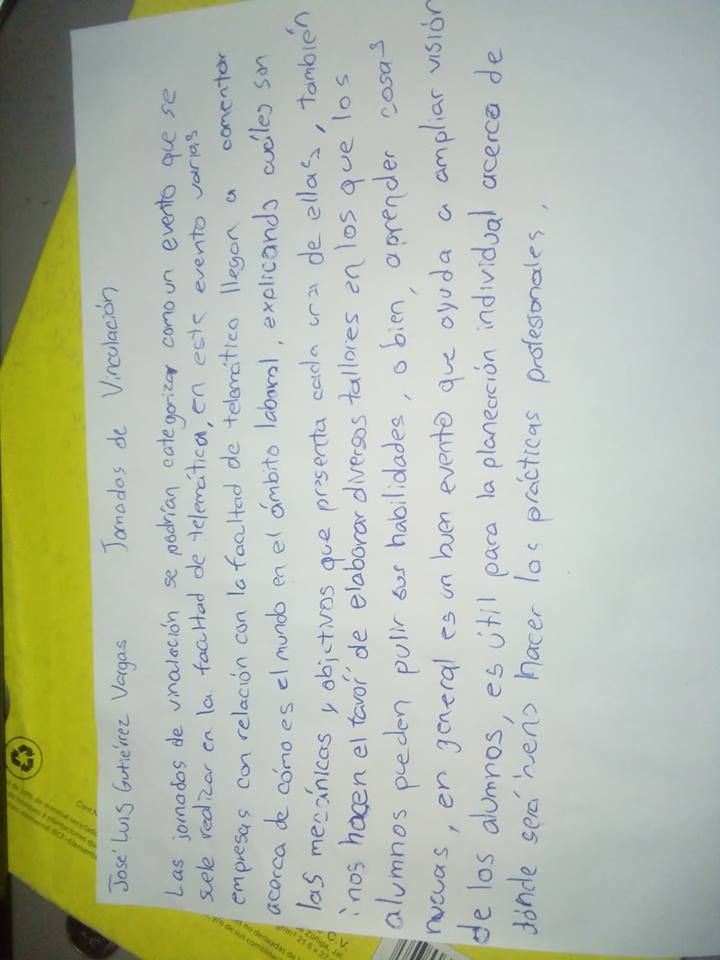 José Luis Gutiérrez Vargas Jornadas de Vinculación
Las jornadas de vinculación se podrían categorizar como un evento que se
suele realizar en la facultad de telemática, en este evento varias
empresas con relación con la facultad de telemática llegan a comentar
acerca de cómo es el mundo en el ámbito laboral, explicando cuáles son
las mecánicas y objetivos que presenta cada una de ellas, también
nos hacen el favor de elaborar diversos talleres en los que los
alumnos pueden pulir sus habilidades, o bien, aprender cosas
nuevas, en general es un buen evento que ayuda a ampliar visión
de los alumnos, es útil para la planeación individual acerca de
dónde será bueno hacer las prácticas profesionales.
C.V.